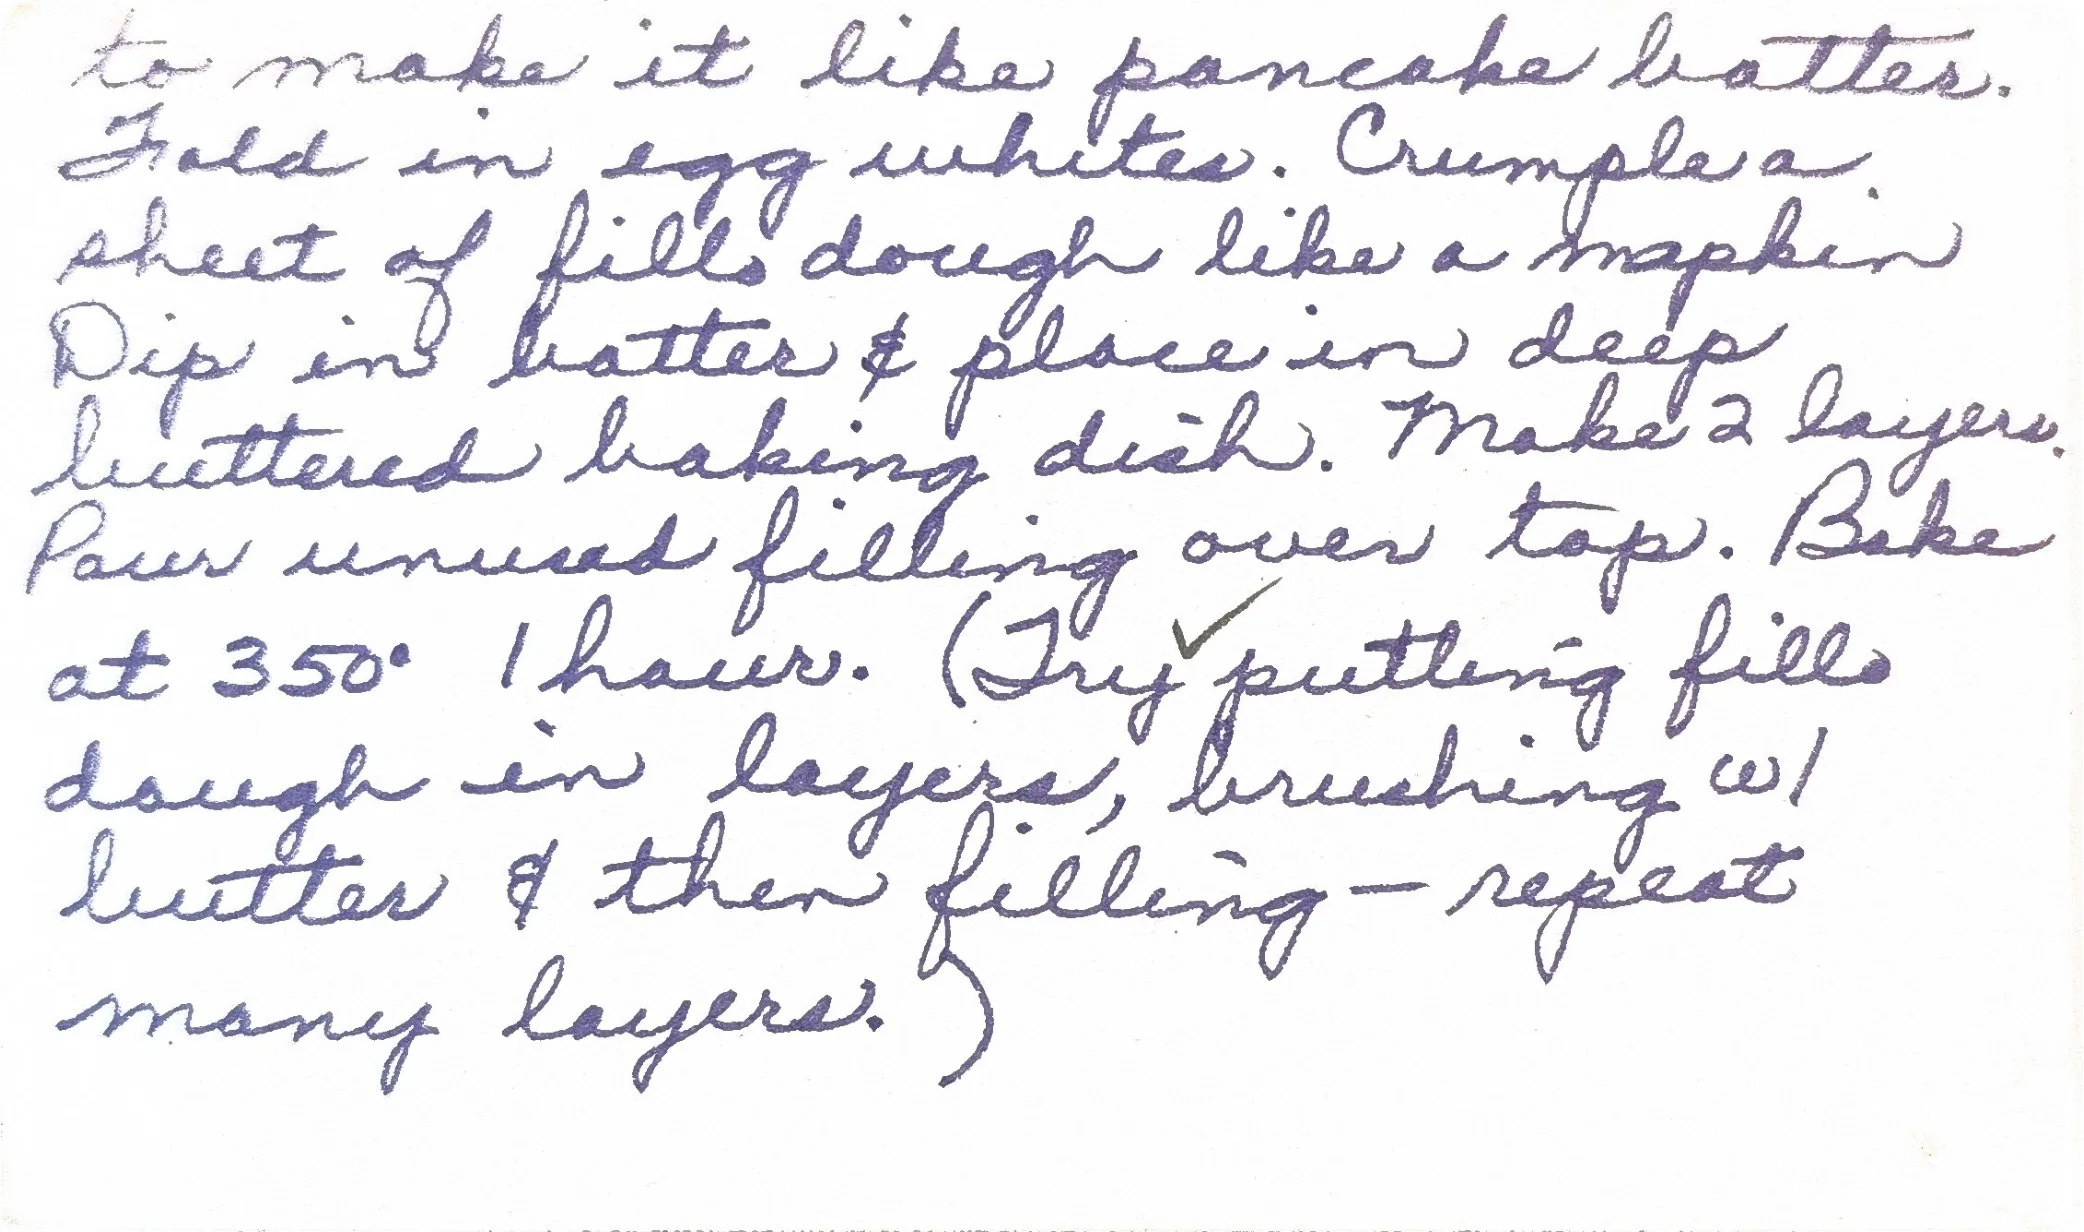 to make it like pancake batter.
Fold in egg whites. Crumple a
sheet of fillo dough like a napkin.
Dip in batter & place in deep
buttered baking dish. Make 2 layers.
Pour unused filling over top. Bake
at 350° 1 hour. (Try ✓ putting fillo
dough in layers, brushing w/
butter & then filling — repeat
many layers.)